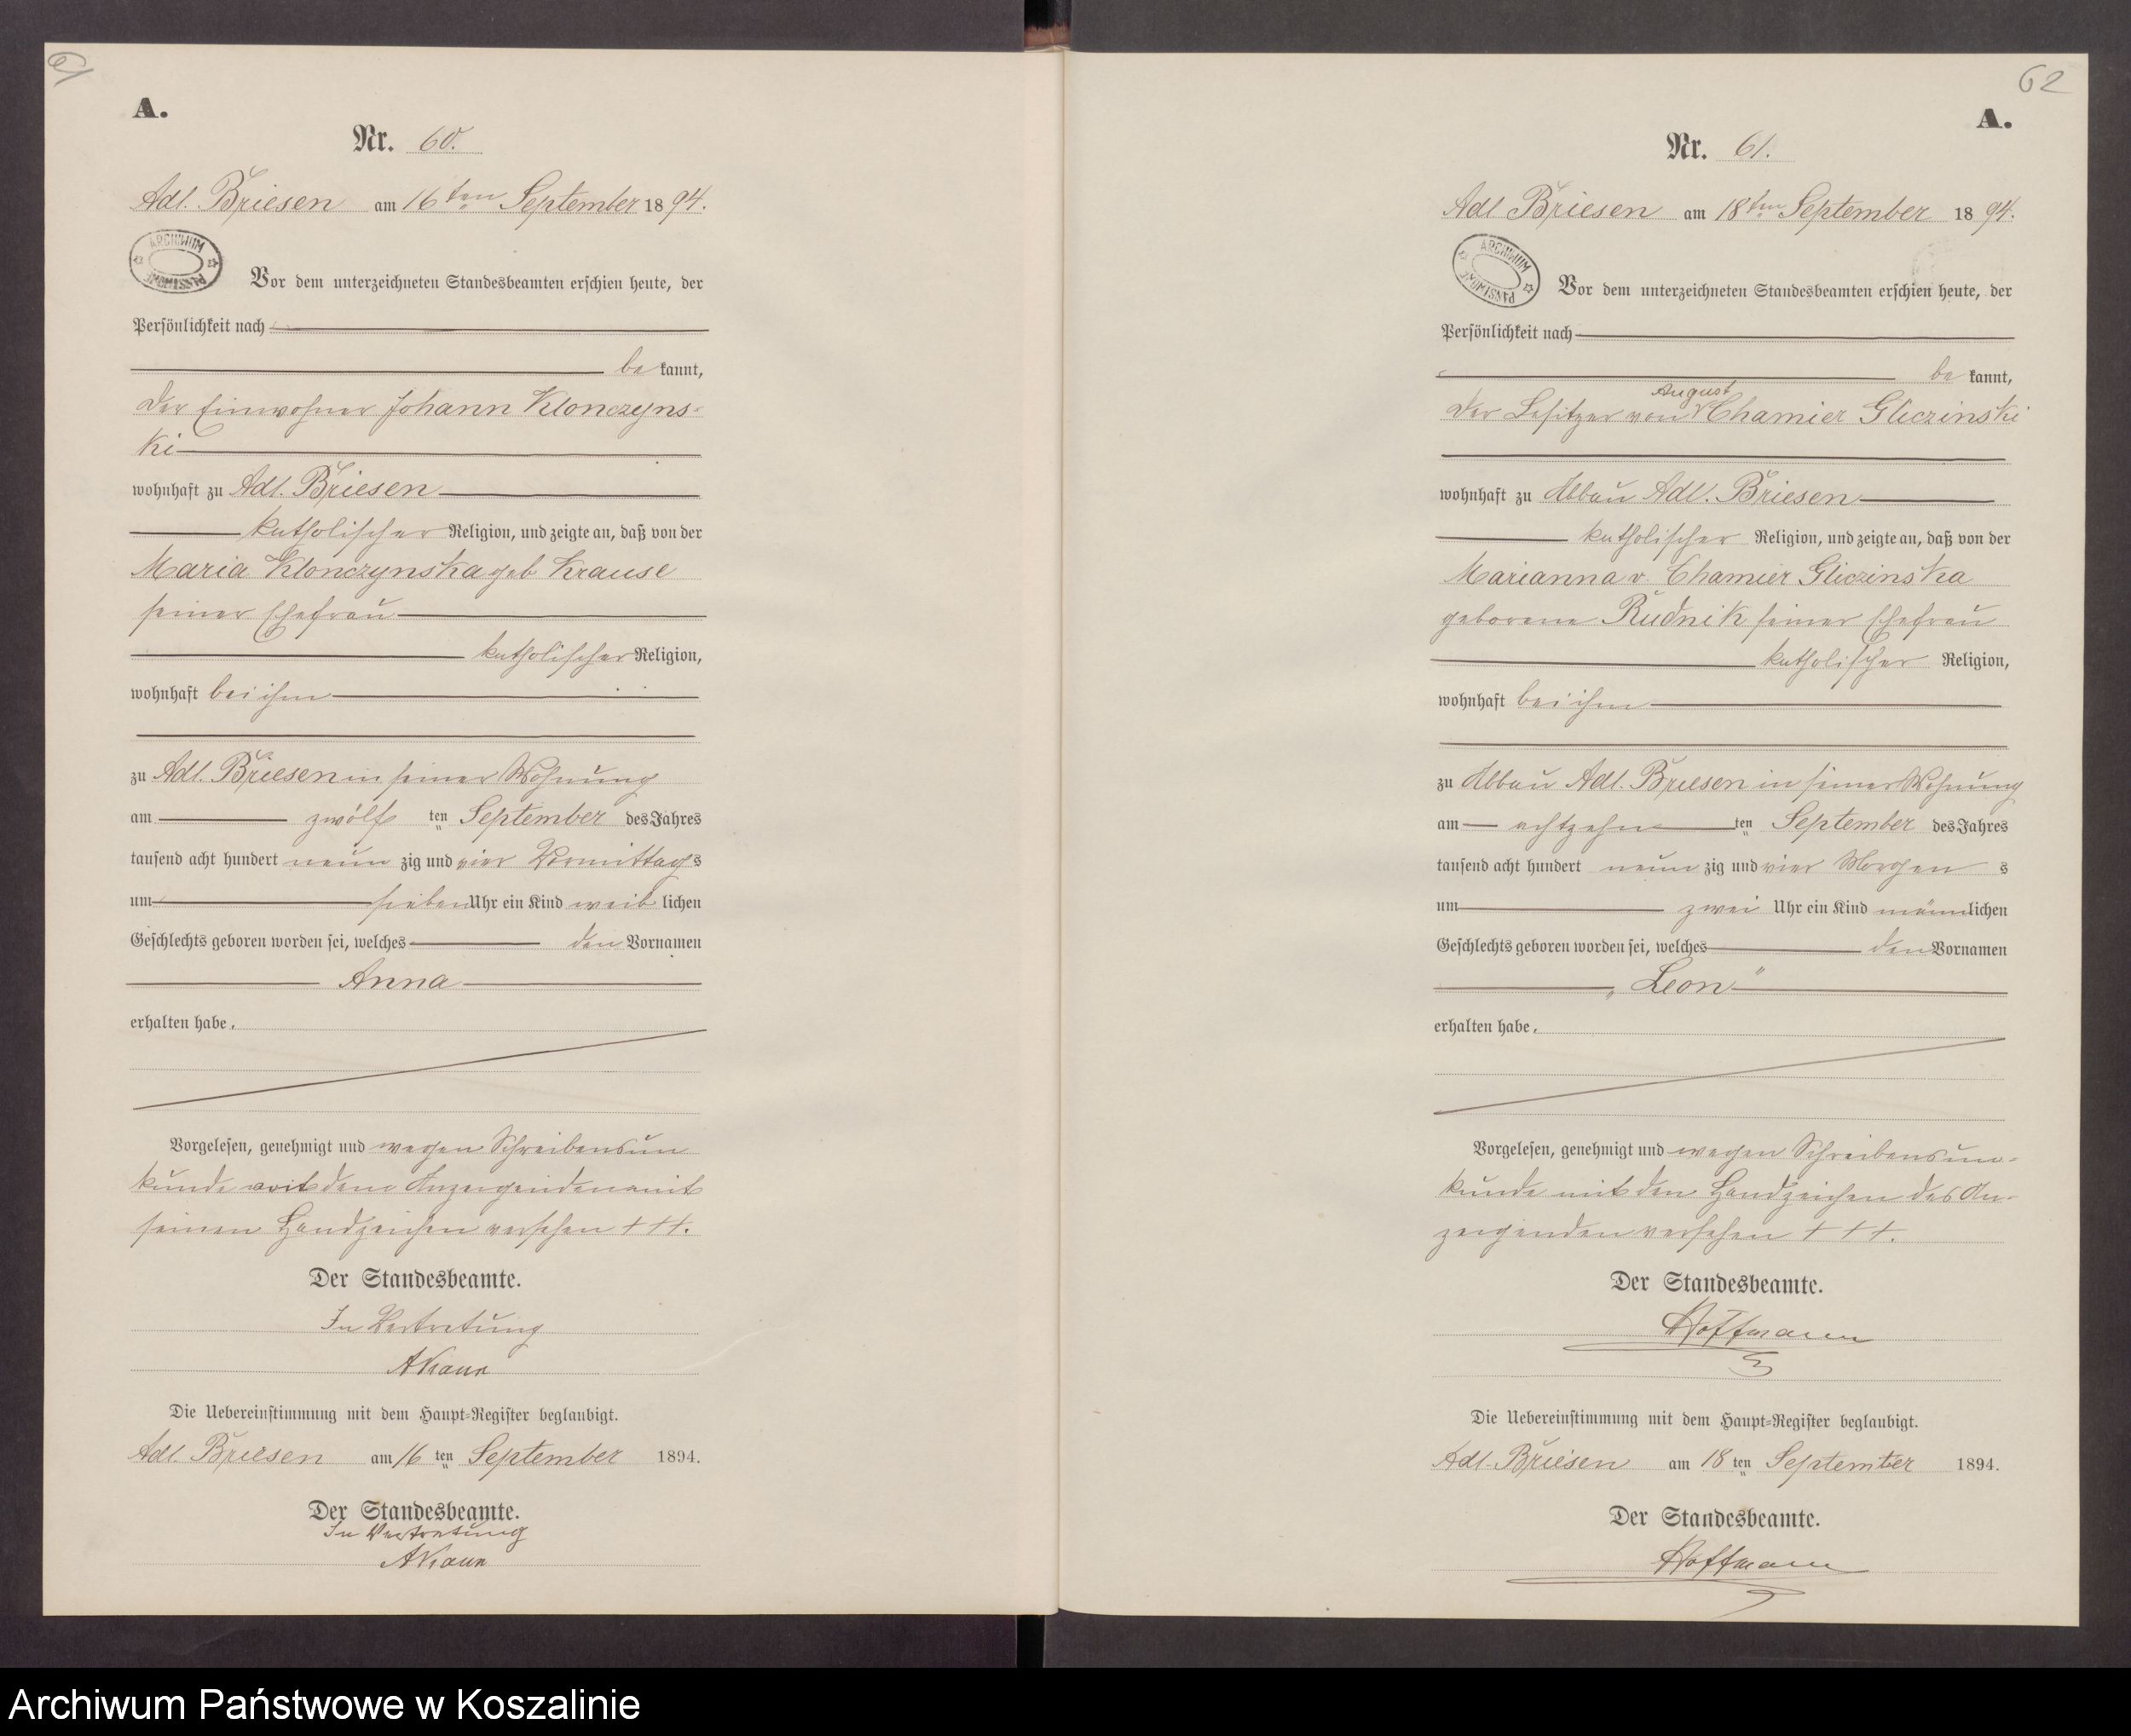 A.
Nr. 60.
Adl. Briesen am 16ten September 1894.
ARCHIWUM
PAŃSTWOWE
Vor dem unterzeichneten Standesbeamten erschien heute, der
Persönlichkeit nach
be kannt,
der Einwohner Johann Klonczyns-
ki
wohnhaft zu Adl. Briesen
katholischer Religion, und zeigte an, daß von der
Maria Klonczynska geb Krause
seiner Ehefrau
katholischer Religion,
wohnhaft bei ihm
zu Adl. Briesen in seiner Wohnung
am zwölf ten September des Jahres
tausend acht hundert neun zig und vier Vormittags
um sieben Uhr ein Kind weib lichen
Geschlechts geboren worden sei, welches den Vornamen
Anna
erhalten habe.
Vorgelesen, genehmigt und wegen Schreibensun
kunde von dem Anzeigenden mit
seinem Handzeichen versehen +++.
Der Standesbeamte.
In Vertretung
Die Uebereinstimmung mit dem Haupt-Register beglaubigt.
Adl. Briesen am 16 ten September 1894.
Der Standesbeamte.
In Vertretung
62
A.
Nr. 61.
Adl Briesen am 18ten September 1894.
ARCHIWUM
PAŃSTWOWE
Vor dem unterzeichneten Standesbeamten erschien heute, der
Persönlichkeit nach
be kannt,
August
der Besitzer von Chamier Gliczinski
wohnhaft zu Abbau Adl. Briesen
katholischer Religion, und zeigte an, daß von der
Marianna v. Chamier Gliczinska
geborene Rudnik seiner Ehefrau
katholischer Religion,
wohnhaft bei ihm
zu Abbau Adl. Briesen in seiner Wohnung
am achtzehn ten September des Jahres
tausend acht hundert neun zig und vier Morgen s
um zwei Uhr ein Kind männlichen
Geschlechts geboren worden sei, welches den Vornamen
„Leon“
erhalten habe.
Vorgelesen, genehmigt und wegen Schreibensun-
kunde mit den Handzeichen des An-
zeigenden versehen +++.
Der Standesbeamte.
Hoffmann
Die Uebereinstimmung mit dem Haupt-Register beglaubigt.
Adl. Briesen am 18 ten September 1894.
Der Standesbeamte.
Hoffmann
Archiwum Państwowe w Koszalinie